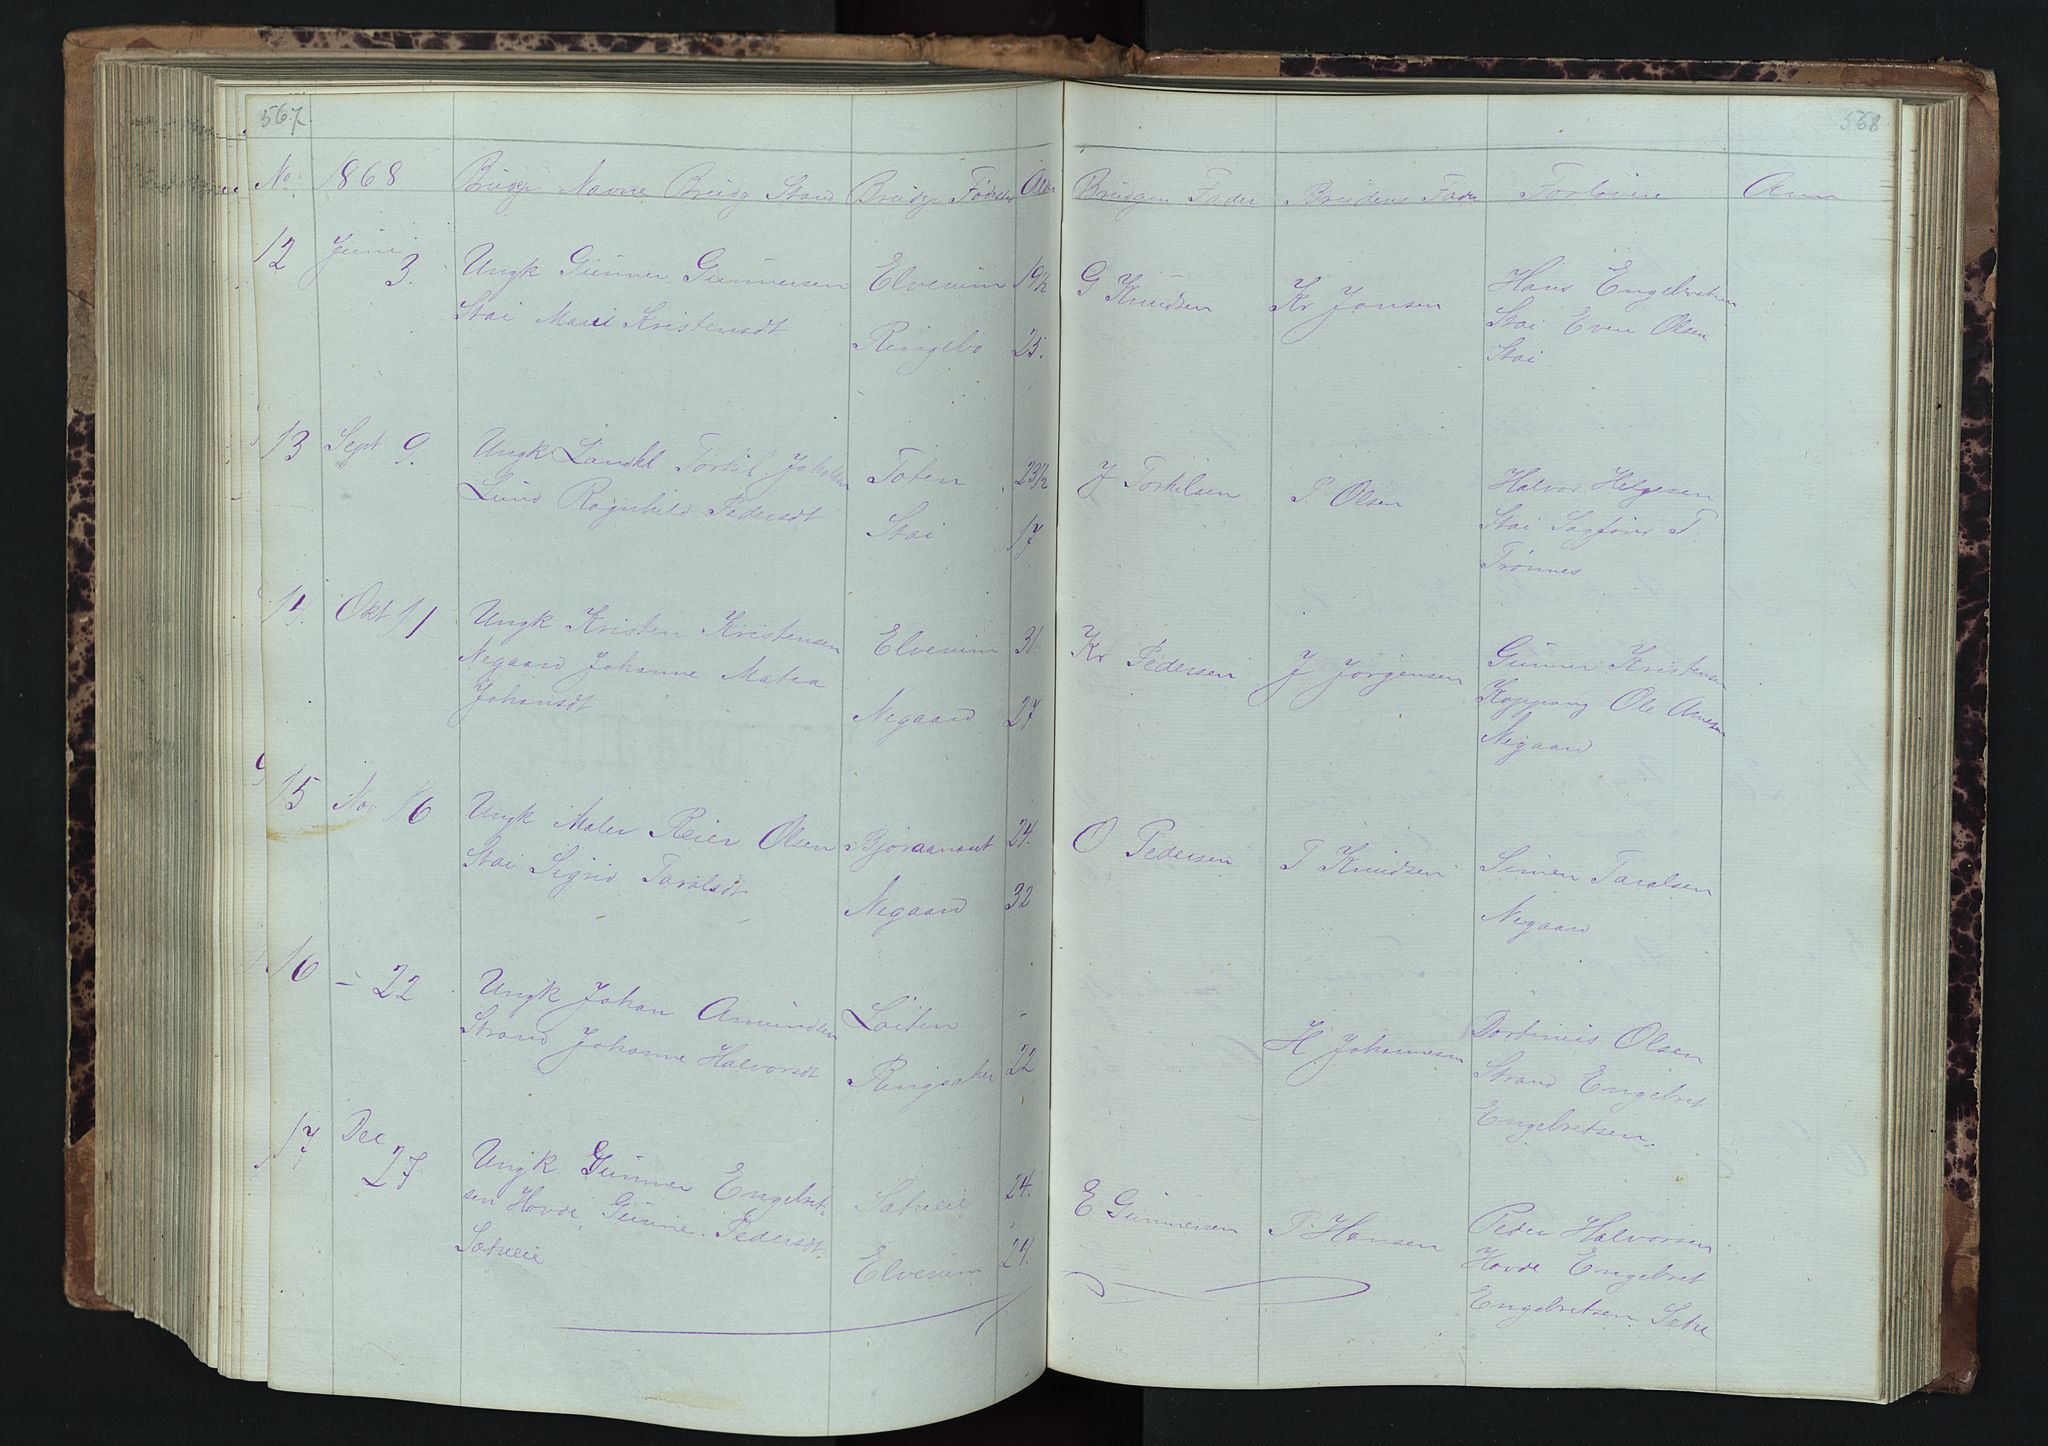 567
568
No. 1868 Brudg Navne Brudg Stand Brudgs Fødested Alder Brudgm Fader Brudens Fader Forlovere Anm
12 Juni 3. Ungk Gunner Gunnersen Elverum 19½ G Knudsen Kr Jonsen Hans Engebretsen
Stai Mari Kristensdt Ringebo 25. Stai Even Olsen
Stai
13 Sept 9. Ungk Landhl Torkil Jakobsen Toten 23½ J Torkilsen P Olsen Halvor Helgesen
Lund Rognhild Pedersdt Stai 17 Stai Sagfører T.
Trønnes
14. Okt 11 Ungk Kristen Kristensen Elverum 31. Kr Pedersen J Jørgensen Gunner Kristensen
Negaard Johanne Matea Negaard 27 Koppang Ole Arnesen
Johansdt Negaard
15 Nov 16 Ungk Maler Reier Olsen Bjøraanæset 24. O Pedersen T Knudsen Simen Taralsen
Stai Sigrid Taralsdt Negaard 32 Negaard
16 – 22 Ungk Johan Amundsen Løiten – H Johannesen Dortinius Olsen
Strand Johanne Halvorsdt Ringsaker 22 Strand Engebret
Engebretsen.
17 Dec 27 Ungk Gunner Engebret- 24. E Gunnersen P Hansen Peder Halvorsen
sen Hovde, Gunne Pedersdt. Elverum 24. Hovde Engebret
Engebretsen Sætre